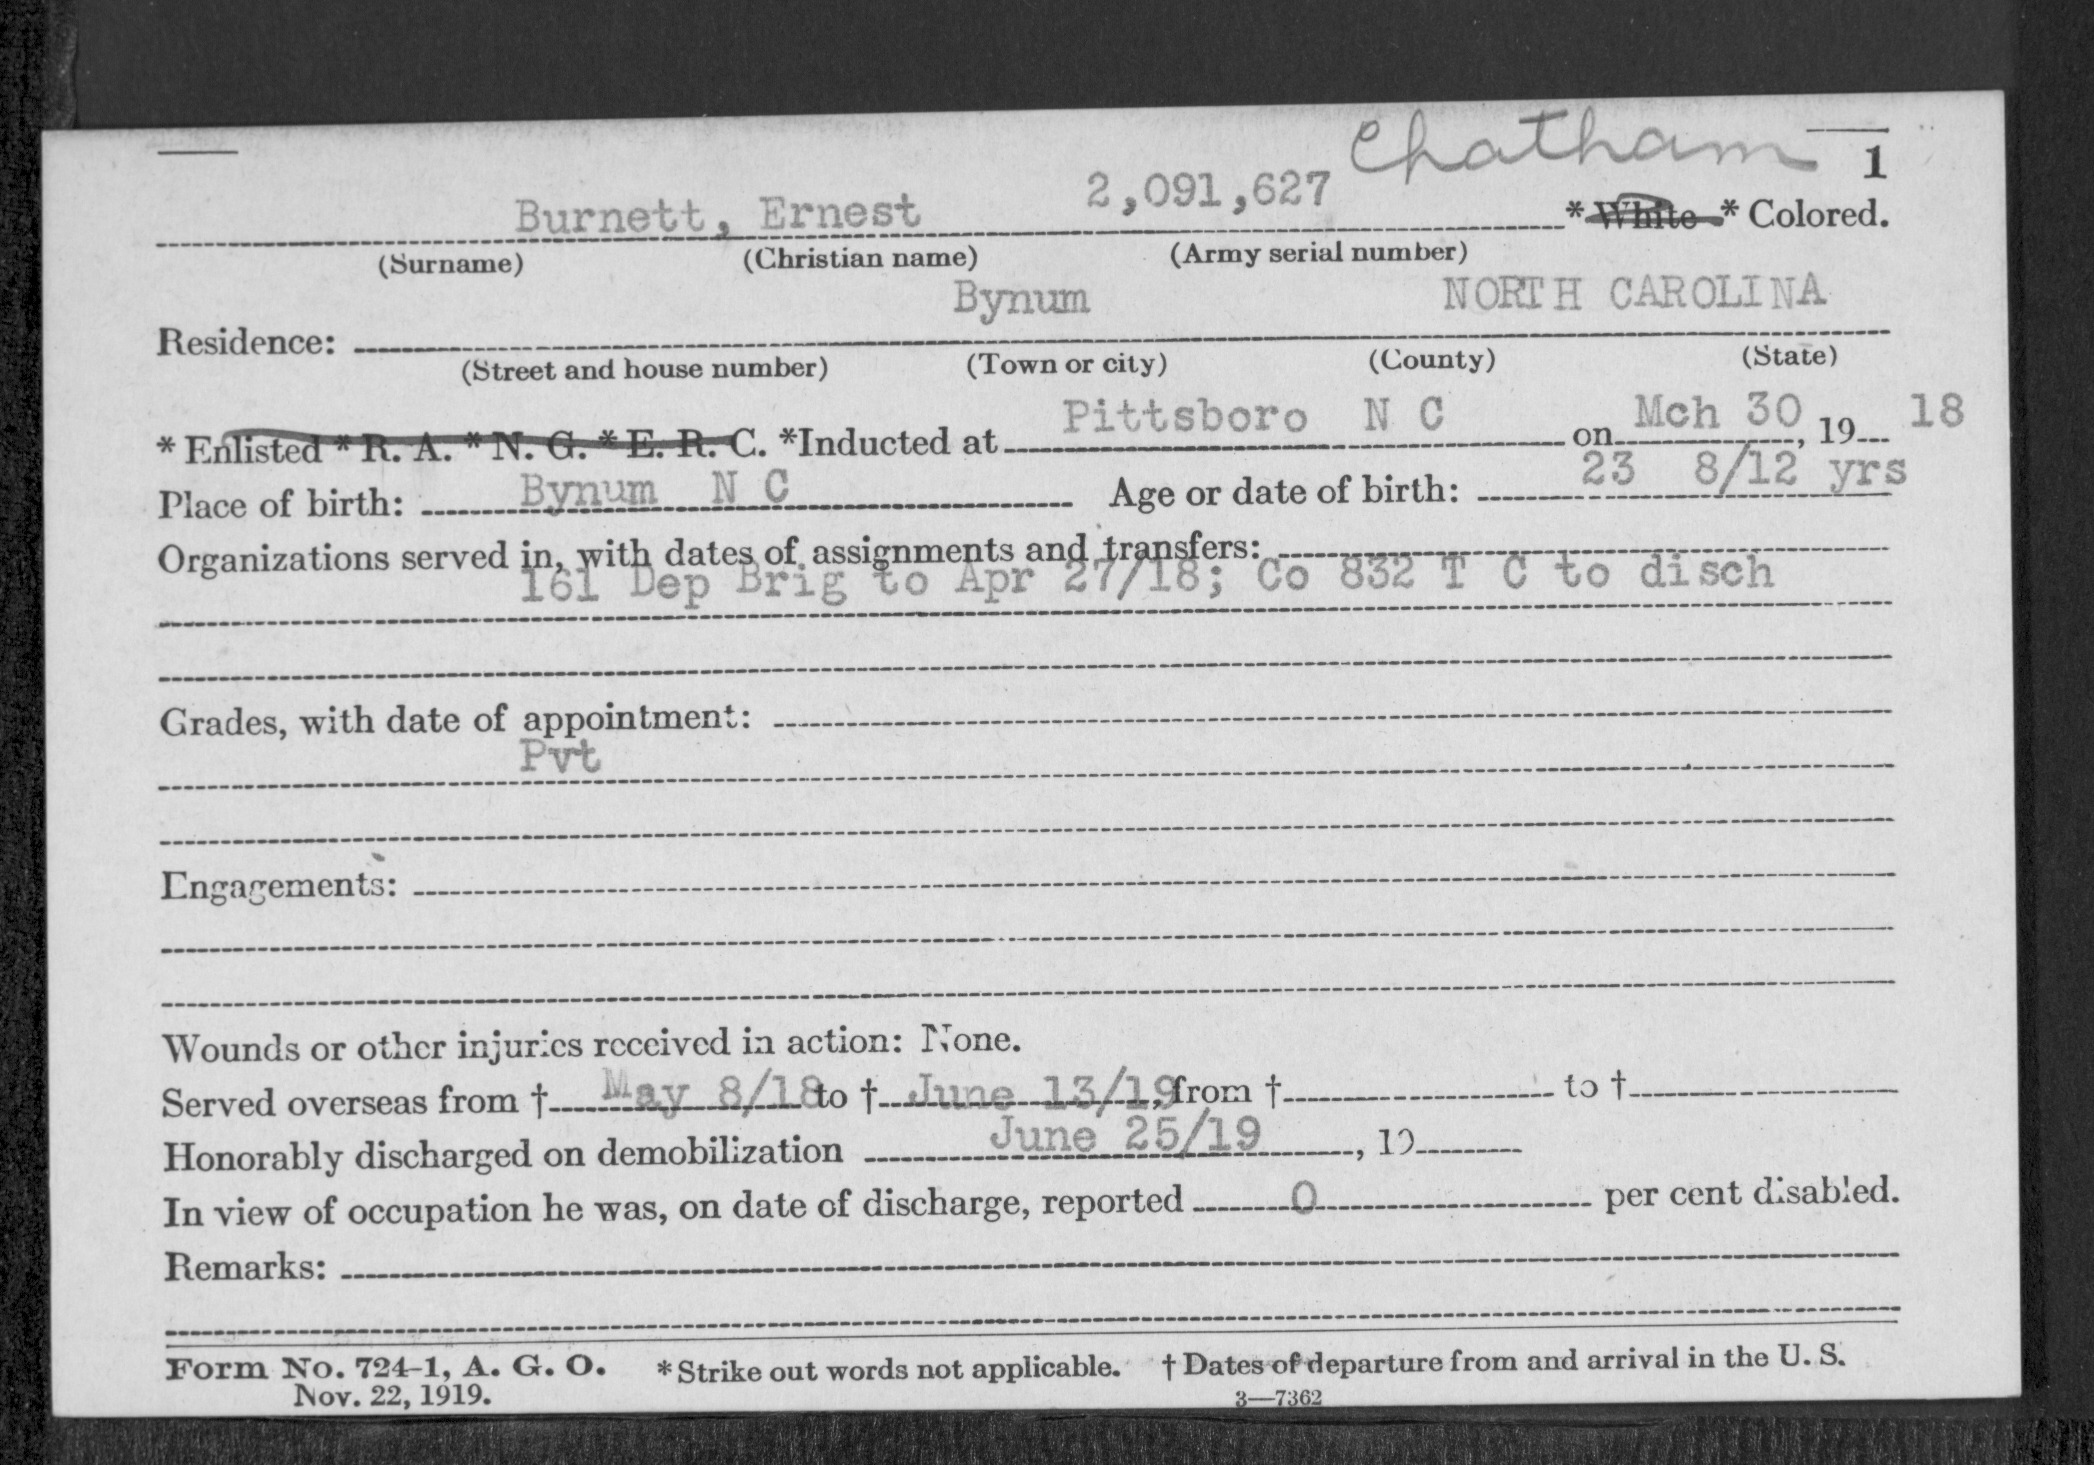 Chatham 1
Burnett, Ernest 2,091,627 * White * Colored.
(Surname) (Christian name) (Army serial number)
Bynum NORTH CAROLINA
Residence:
(Street and house number) (Town or city) (County) (State)
* Enlisted * R. A. * N. G. * E. R. C. *Inducted at Pittsboro N C on Mch 30, 19 18
Place of birth: Bynum N C Age or date of birth: 23 8/12 yrs
Organizations served in, with dates of assignments and transfers:
161 Dep Brig to Apr 27/18; Co 832 T C to disch
Grades, with date of appointment:
Pvt
Engagements:
Wounds or other injuries received in action: None.
Served overseas from † May 8/18 to † June 13/19, from † to †
Honorably discharged on demobilization June 25/19, 19
In view of occupation he was, on date of discharge, reported 0 per cent disabled.
Remarks:
Form No. 724-1, A. G. O. * Strike out words not applicable. † Dates of departure from and arrival in the U. S.
Nov. 22, 1919. 3—7362